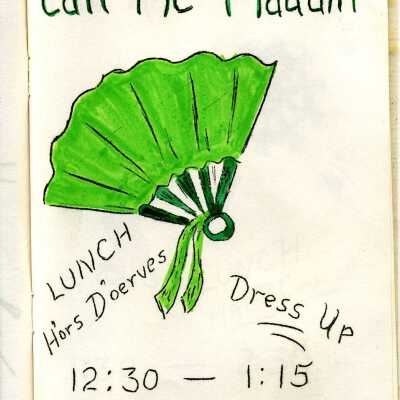 Call Me Madam
LUNCH
H'ors D'oerves
Dress Up
12:30 — 1:15